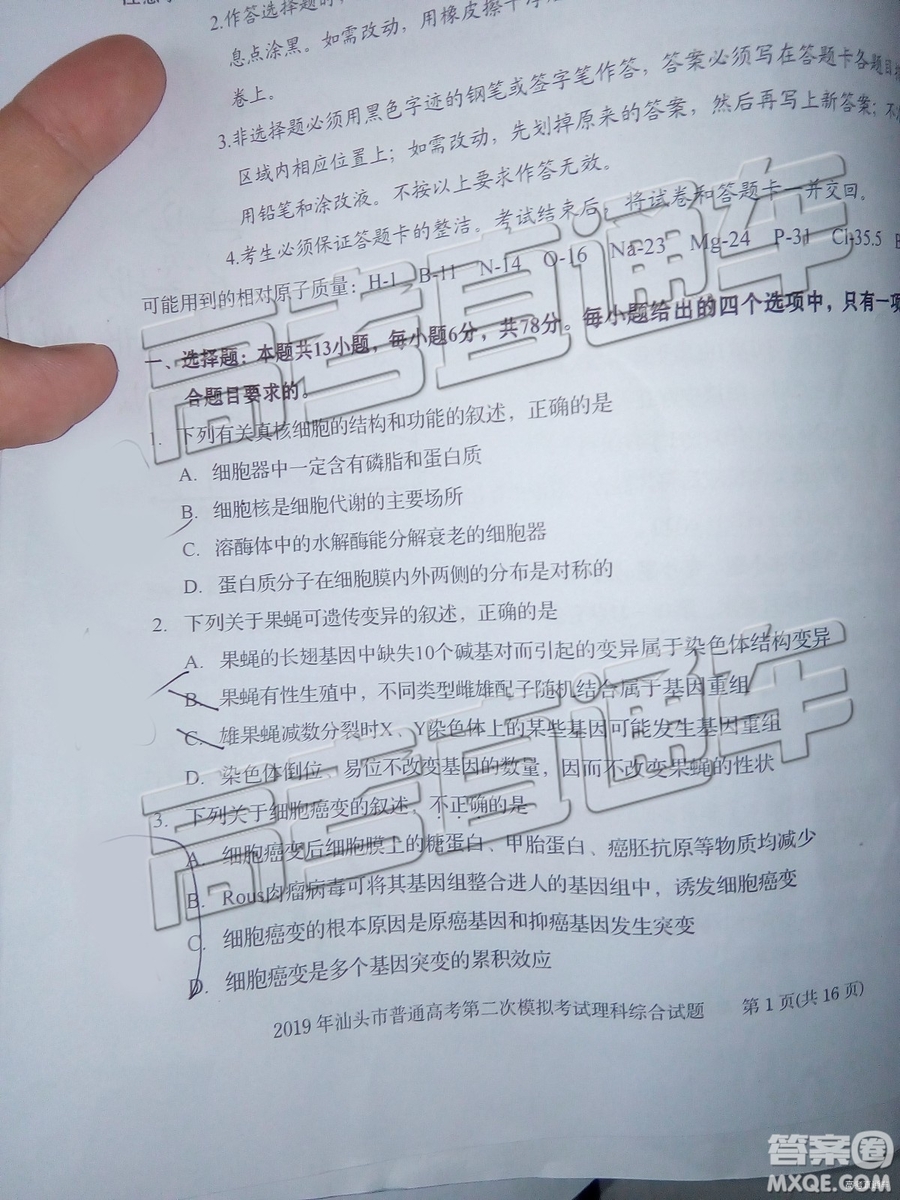 2.作答选择题时,
息点涂黑。如需改动,用橡皮擦干净
卷上。
3.非选择题必须用黑色字迹的钢笔或签字笔作答,答案必须写在答题卡各题目
区域内相应位置上;如需改动,先划掉原来的答案,然后再写上新答案;不
用铅笔和涂改液。不按以上要求作答无效。
4.考生必须保证答题卡的整洁。考试结束后,将试卷和答题卡一并交回。
可能用到的相对原子质量:H-1 B-11 N-14 O-16 Na-23 Mg-24 P-31 Cl-35.5
一、选择题:本题共13小题,每小题6分,共78分。每小题给出的四个选项中,只有一项
合题目要求的。
1. 下列有关真核细胞的结构和功能的叙述,正确的是
A. 细胞器中一定含有磷脂和蛋白质
B. 细胞核是细胞代谢的主要场所
C. 溶酶体中的水解酶能分解衰老的细胞器
D. 蛋白质分子在细胞膜内外两侧的分布是对称的
2. 下列关于果蝇可遗传变异的叙述,正确的是
A. 果蝇的长翅基因中缺失10个碱基对而引起的变异属于染色体结构变异
B. 果蝇有性生殖中,不同类型雌雄配子随机结合属于基因重组
C. 雄果蝇减数分裂时X、Y染色体上的某些基因可能发生基因重组
D. 染色体倒位、易位不改变基因的数量,因而不改变果蝇的性状
3. 下列关于细胞癌变的叙述,不正确的是
A. 细胞癌变后细胞膜上的糖蛋白、甲胎蛋白、癌胚抗原等物质均减少
B. Rous肉瘤病毒可将其基因组整合进人的基因组中,诱发细胞癌变
C. 细胞癌变的根本原因是原癌基因和抑癌基因发生突变
D. 细胞癌变是多个基因突变的累积效应
2019年汕头市普通高考第二次模拟考试理科综合试题 第1页(共16页)
高考直通车
高考直通车
答案圈
MXQE.COM